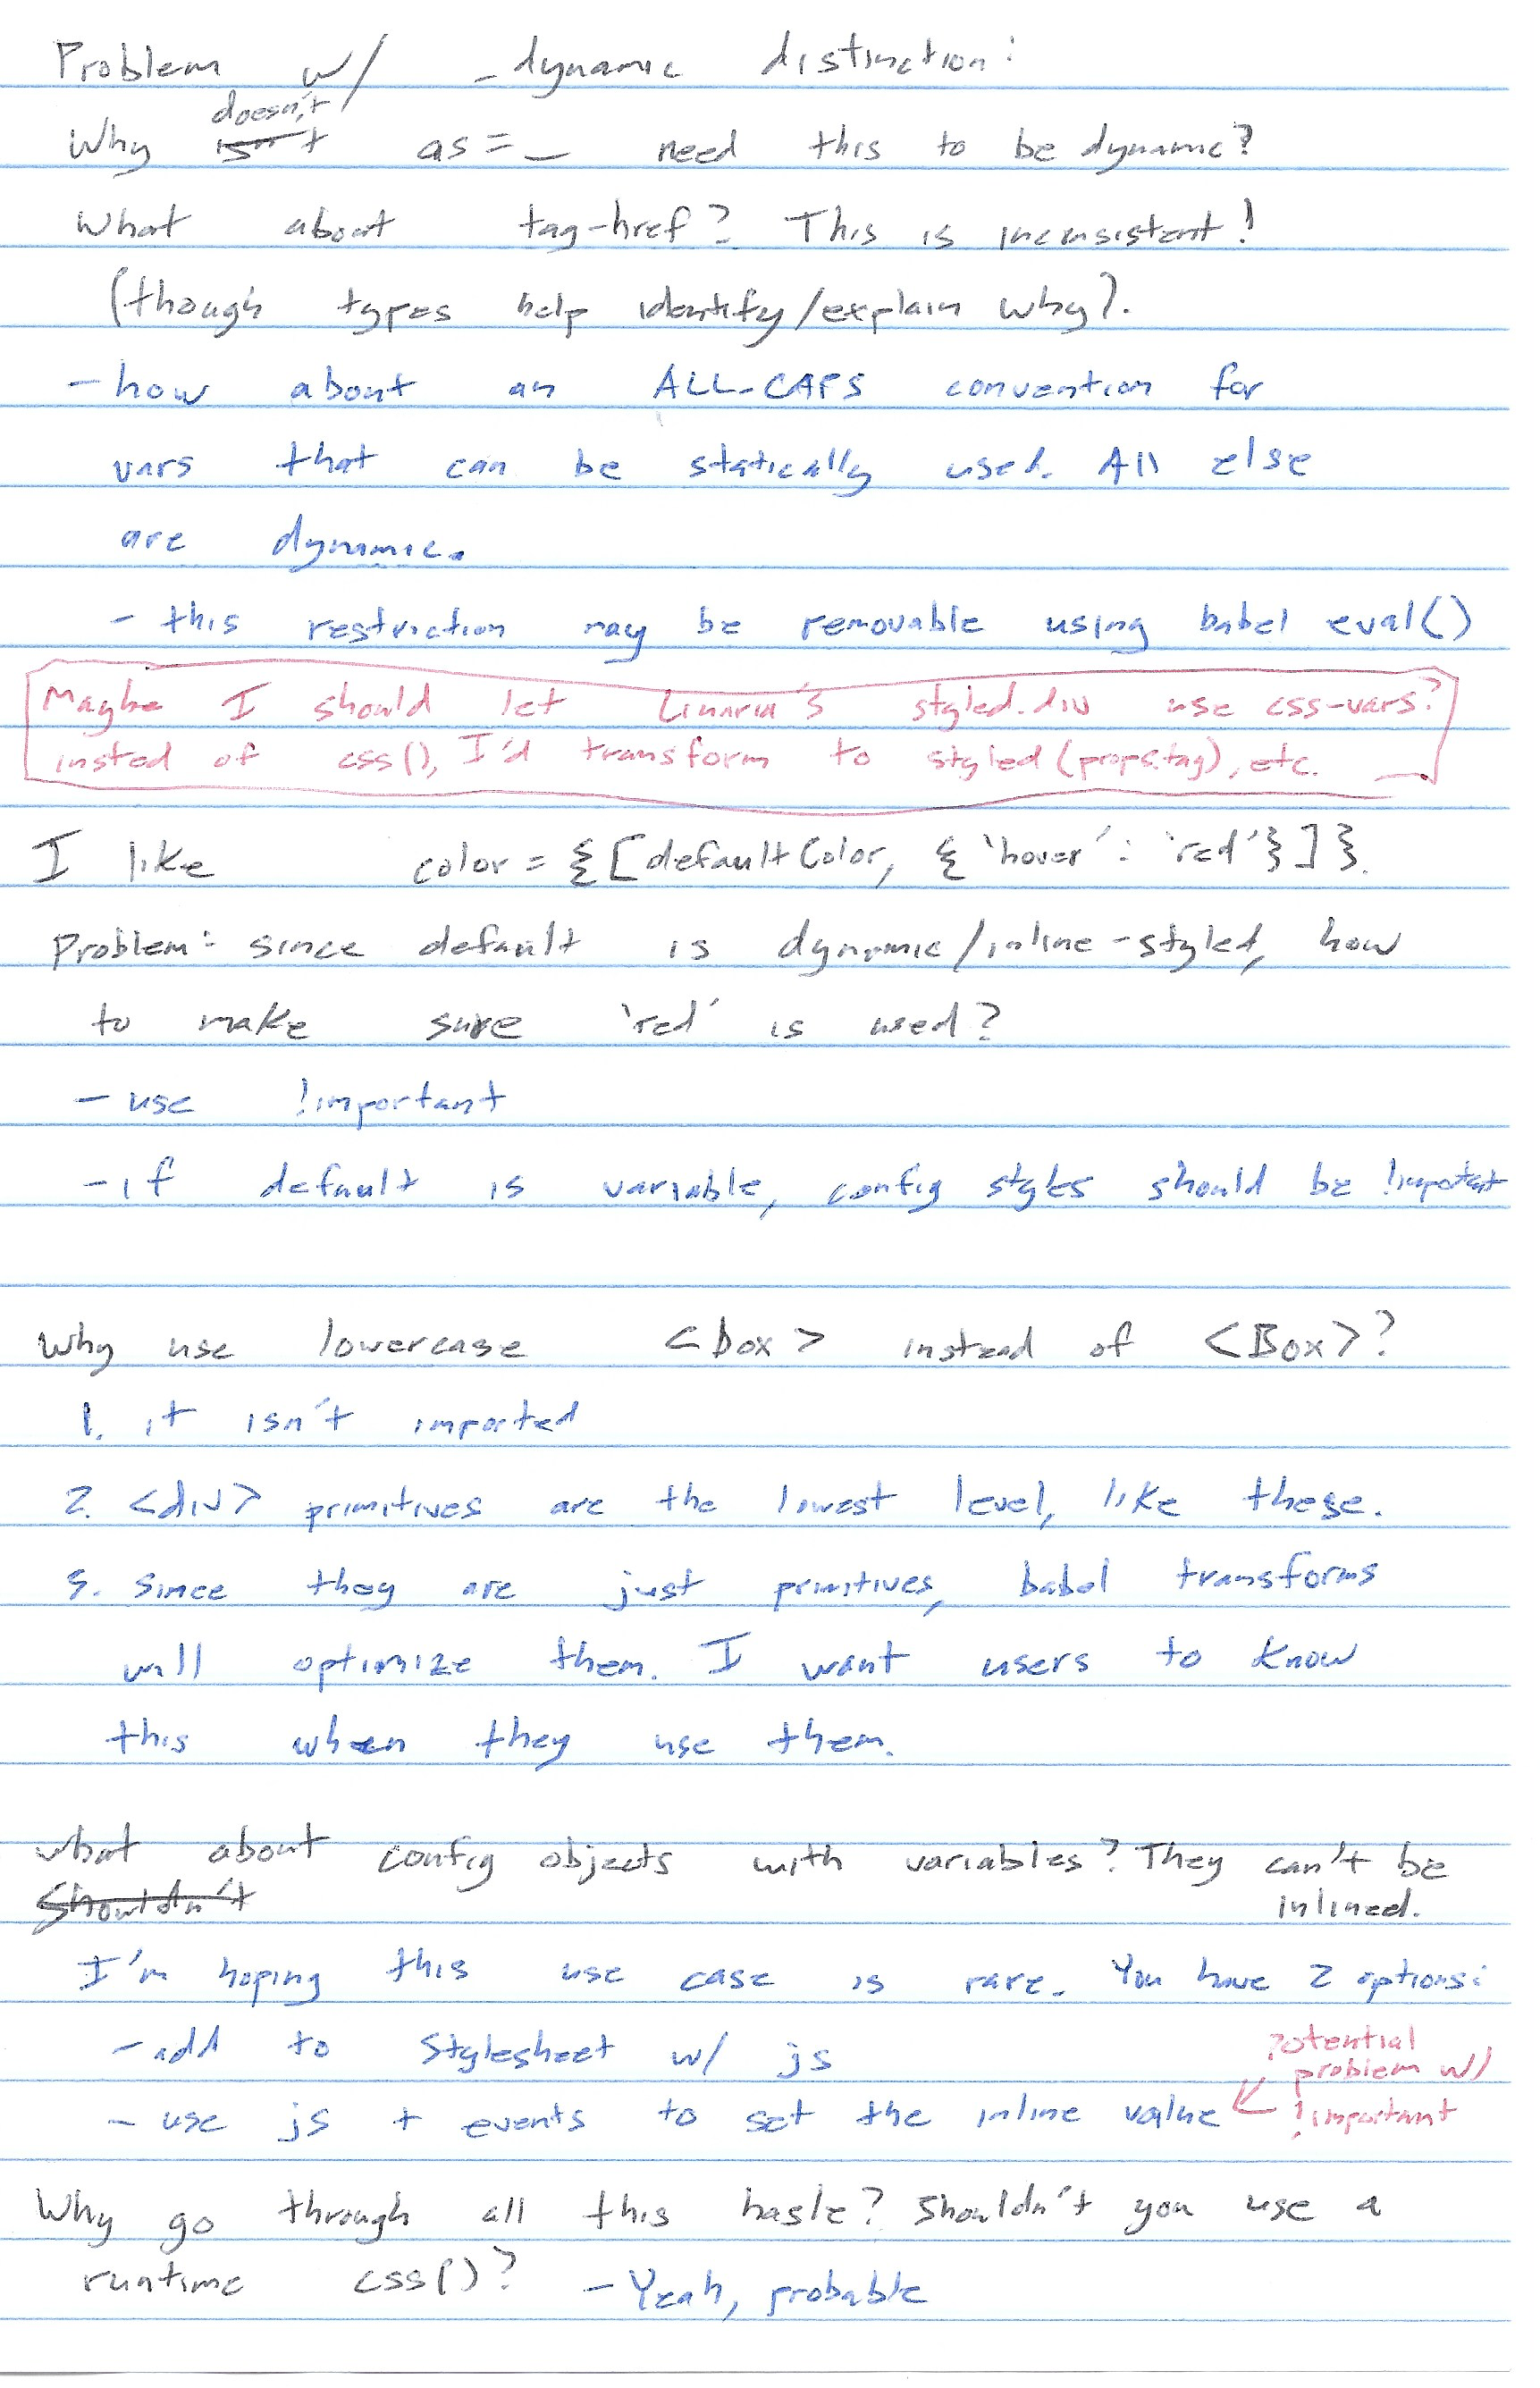 Problem w/ _dynamic distinction:
doesn't
Why isn't as=_ need this to be dynamic?
What about tag-href? This is inconsistent!
(though types help identify/explain why).
- how about an ALL-CAPS convention for
vars that can be statically used. All else
are dynamic.
- this restriction may be removable using babel eval()
Maybe I should let Linaria's styled.div use css-vars?
insted of css(), I'd transform to styled(props.tag), etc.
I like color={[defaultColor, {'hover': 'red'}]}.
Problem: since default is dynamic/inline-styled, how
to make sure 'red' is used?
- use !important
- if default is variable, config styles should be !important
Why use lowercase <box> instead of <Box>?
1. it isn't imported
2. <div> primitives are the lowest level, like these.
3. since they are just primitives, babel transforms
will optimize them. I want users to know
this when they use them.
What about config objects with variables? They can't be
Shouldn't inlined.
I'm hoping this use case is rare. You have 2 options:
- add to stylesheet w/ js
- use js + events to set the inline value
Potential
problem w/
!important
Why go through all this hasle? Shouldn't you use a
runtime css()? - Yeah, probable